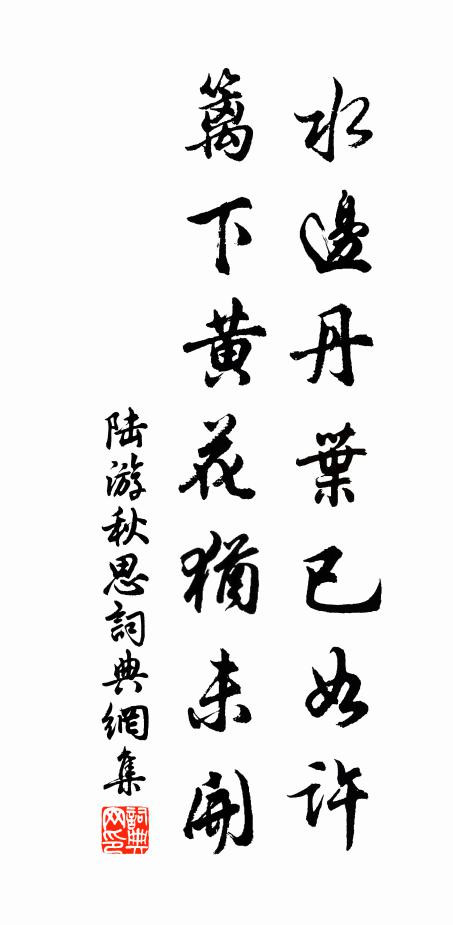 水邊丹葉已如許
籬下黄花猶未開
陸游秋思詞典網集
詞典网印